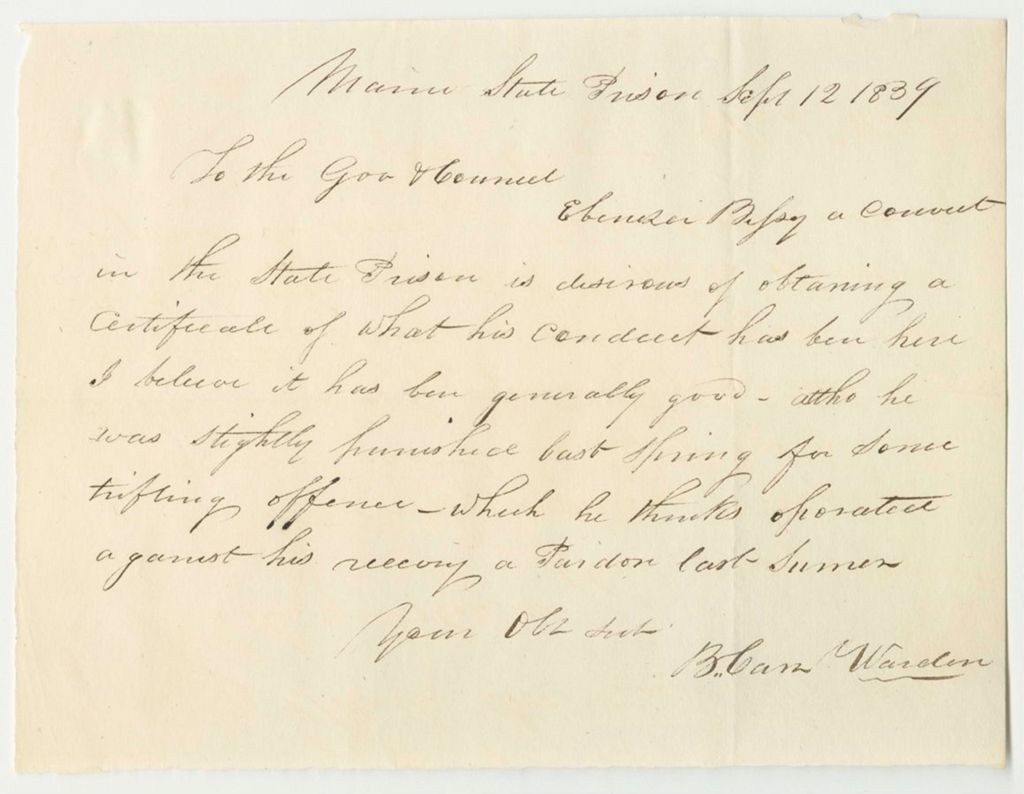 Maine State Prison Sept 12 1839
To the Gov & Councel
Ebenezer Bessy a Convict
in the State Prison is desirous of obtaning a
Certificate of what his Conduct has ben here
I believe it has ben generally good - altho he
was slightly punished last Spring for some
trifling offence - which he thinks operated
against his receving a Pardon last Sumer
Your Obt Svt
B. Carr Warden